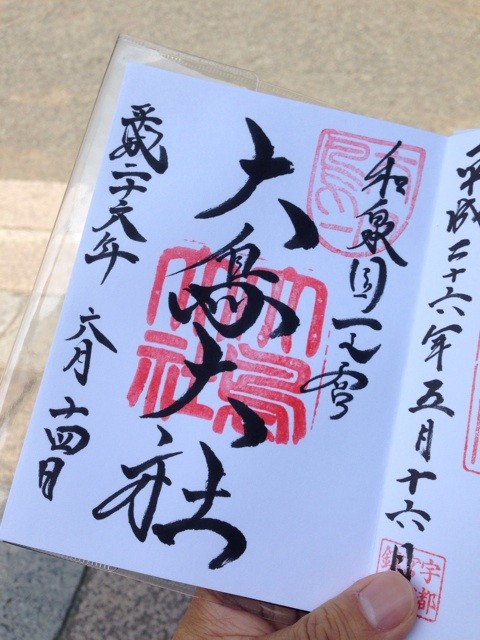 平成二十六年五月十六日
宇都
和泉国一之宮
大鳥大社
大鳥大社
平成二十六年 六月 十四日